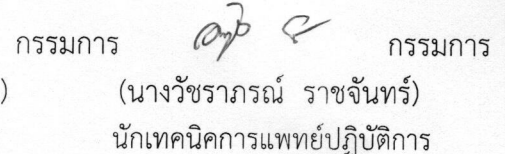 กรรมการ กรรมการ
) (นางวัชราภรณ์ ราชจันทร์)
นักเทคนิคการแพทย์ปฏิบัติการ